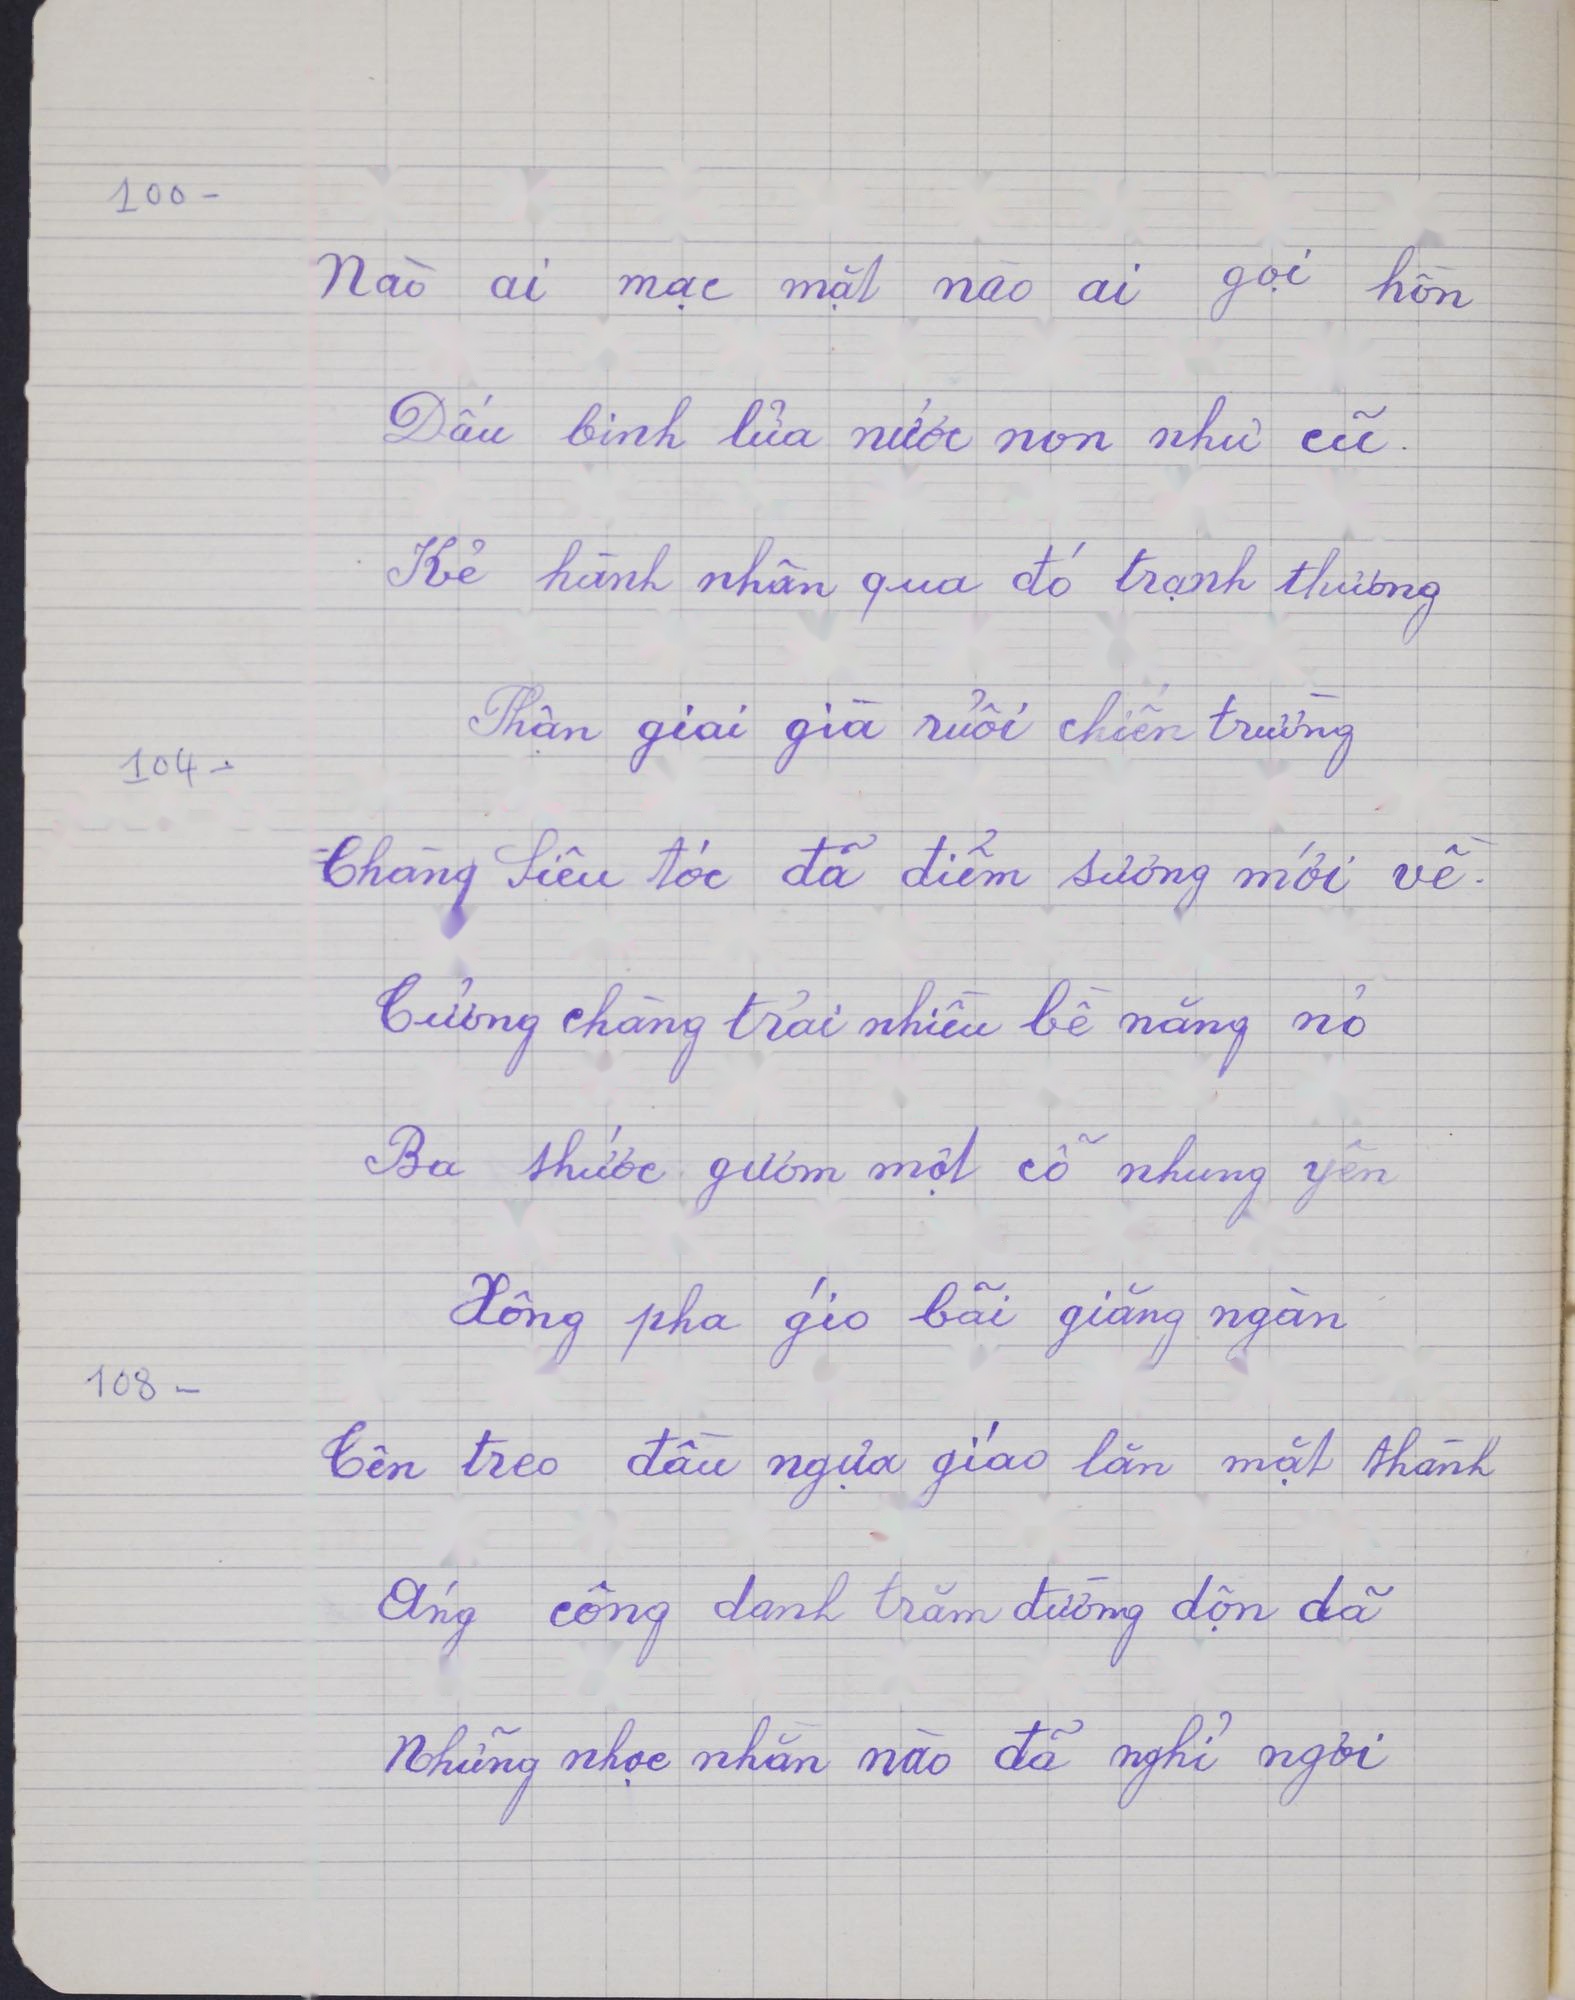 100-
Nào ai mạc mặt nào ai gọi hồn
Dấu binh lửa nước non như cũ.
Kẻ hành nhân qua đó trạnh thương
Thận giai già ruổi chiến trường
104-
Chàng Siêu tóc đã điểm sương mới về.
Tưởng chàng trải nhiều bề nắng nỏ
Ba thước gươm một cỗ nhung yên
Xông pha gió bãi giăng ngàn
108-
Tên treo đầu ngựa giáo lăn mặt thành
Áng công danh trăm đường dộn dã
Những nhọc nhằn nào đã nghỉ ngơi